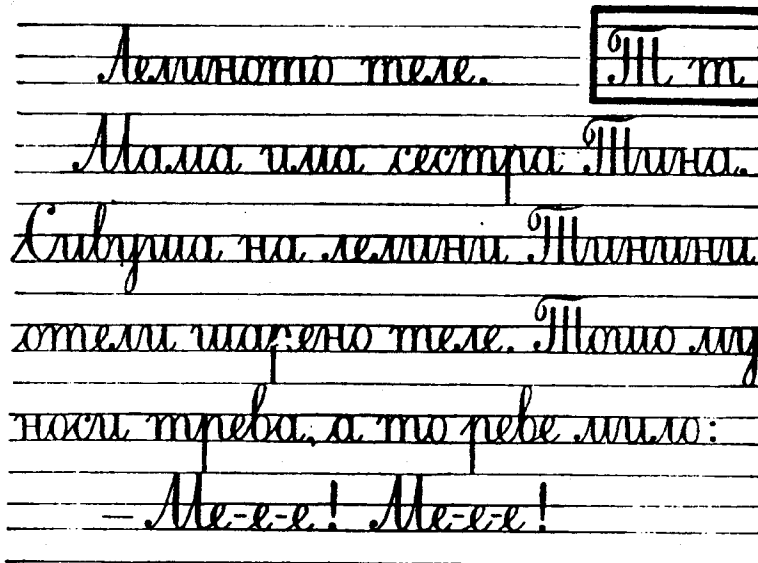 Лелиното теле. Т т
Мама има сестра Тина.
Сивуша на лелини Тинини
отели шарено теле. Тошо му
носи трева, а то реве мило:
– Ме-е-е! Ме-е-е!